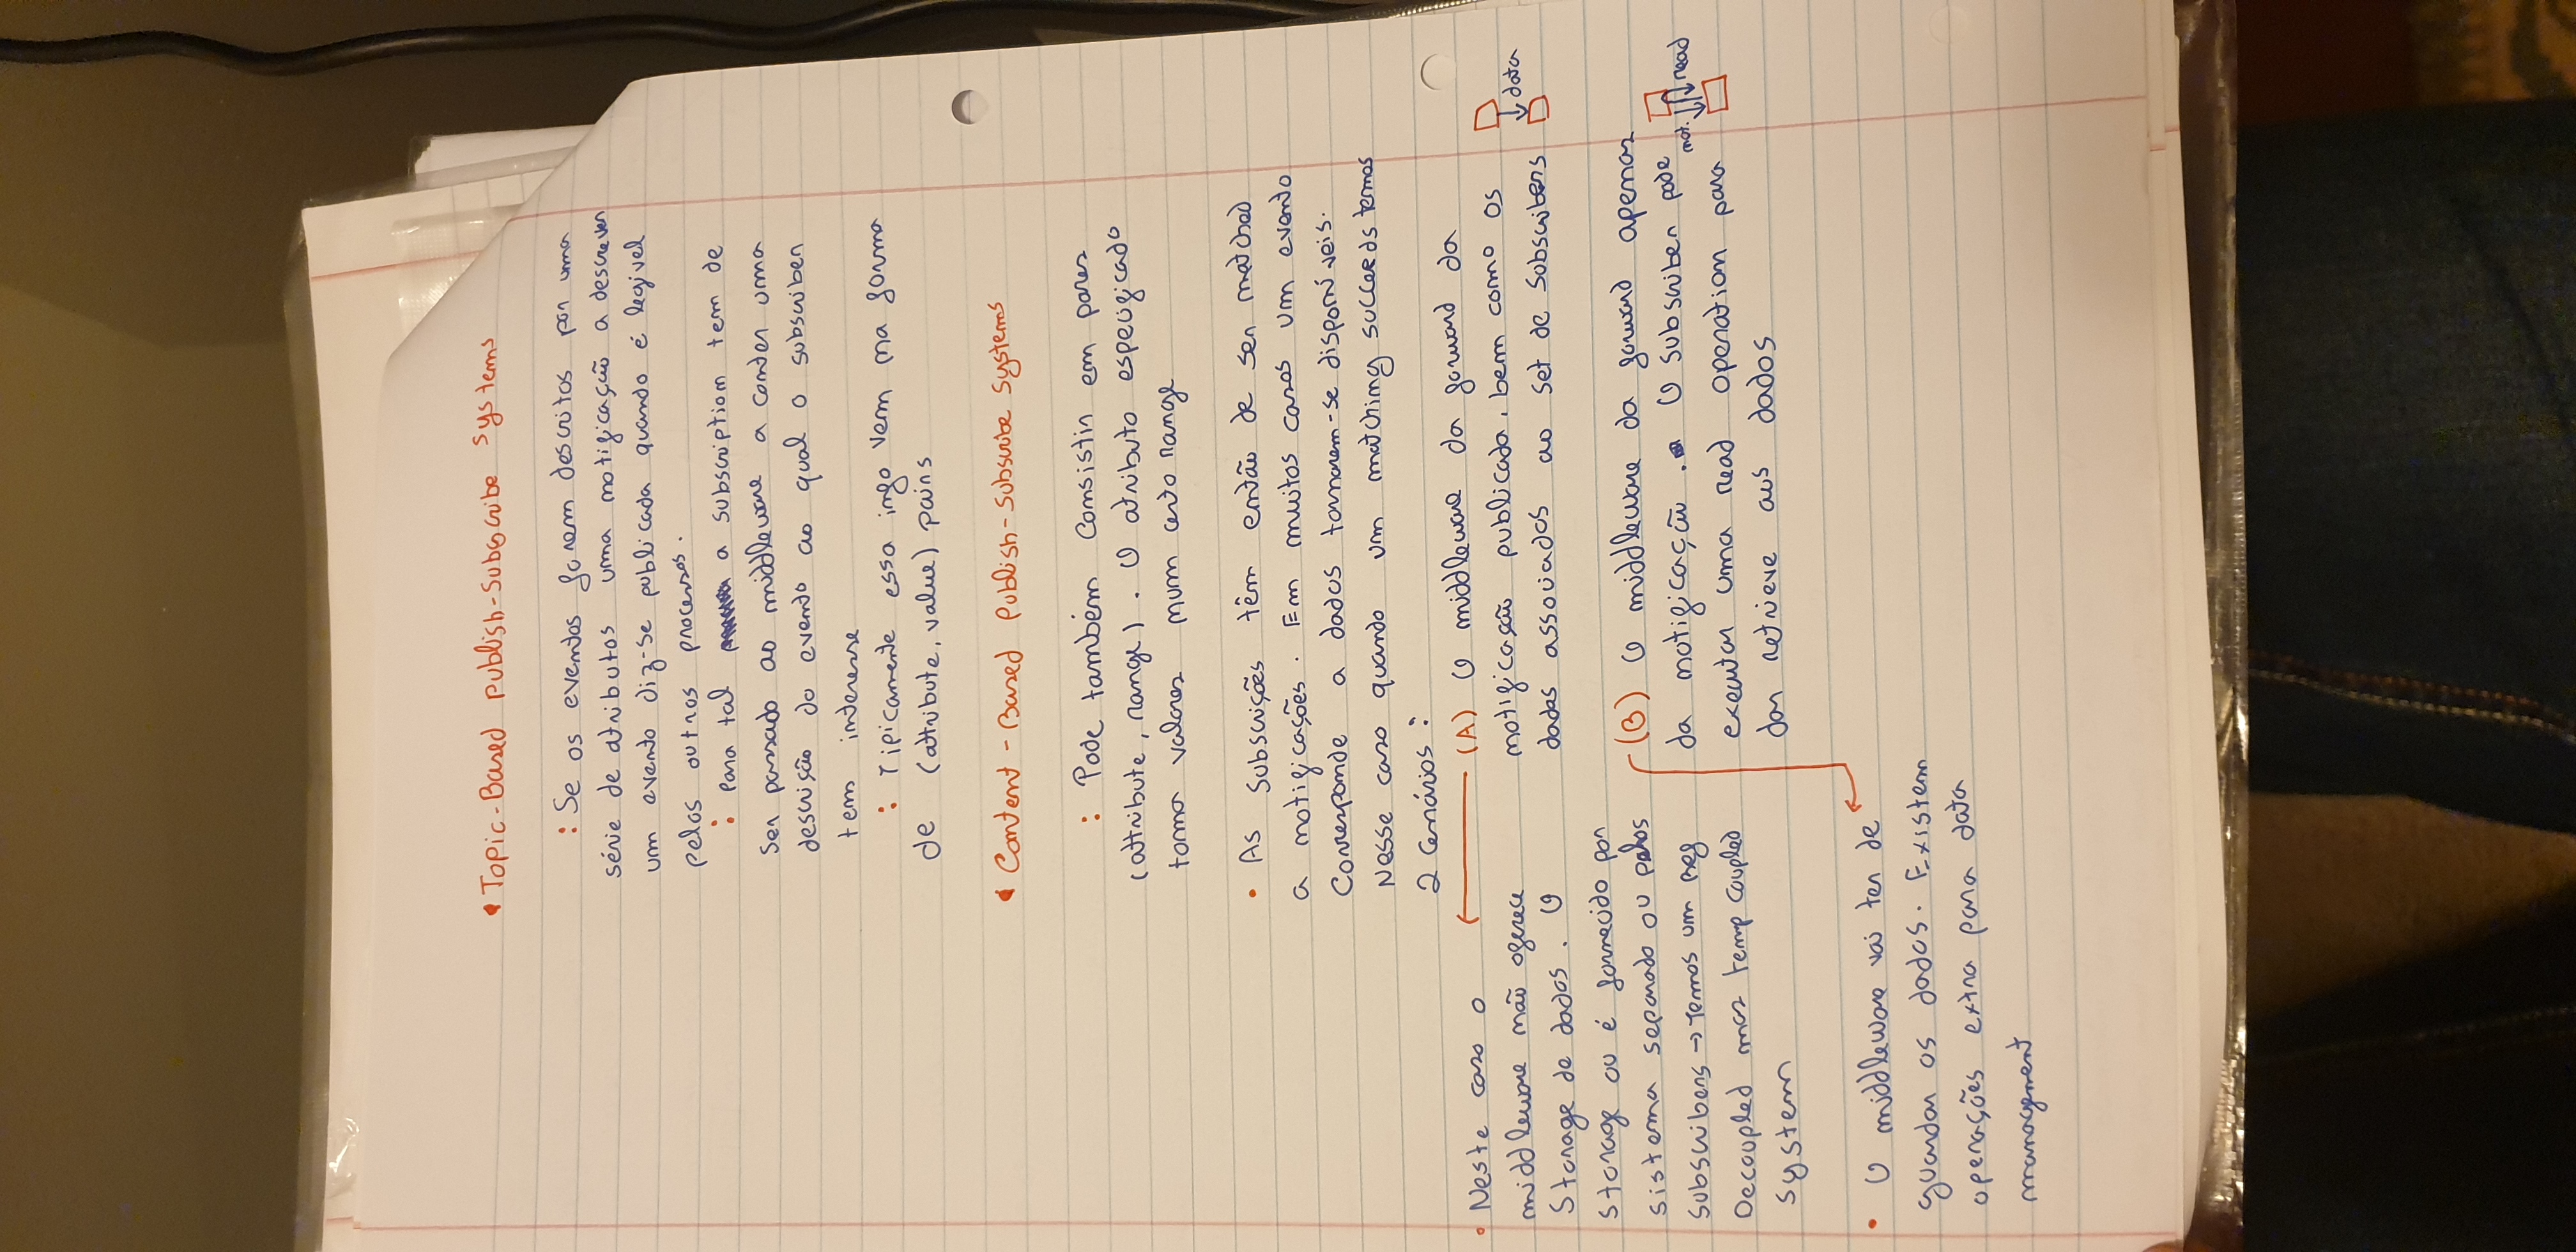 • Topic-Based Publish-Subscribe Systems
: Se os eventos forem descritos por uma
série de atributos uma notificação a descrever
um evento diz-se publicada quando é legivel
pelos outros processos.
: Para tal a subscription tem de
ser passado ao middleware a conter uma
descrição do evento ao qual o subscriber
tem interesse
: Tipicamente essa info vem na forma
de (attribute, value) pairs
• Content-Based Publish-Subscribe Systems
: Pode também consistir em pares
(attribute, range). O atributo especificado
toma valores num certo range
• As subscrições têm então de ser matched
a notificações. Em muitos casos um evento
corresponde a dados tornarem-se disponíveis.
Nesse caso quando um matching succeeds temos
2 cenários:
(A) O middleware da forward da
notificação publicada, bem como os
dados associados ao set de subscribers
data
• Neste caso o
middleware não oferece
storage de dados. O
storage ou é fornecido por
sistema separado ou pelos
subscribers → Temos um Ref
Decoupled mas temp coupled
system
(B) O middleware da forward apenas
da notificação. O subscriber pode
executar uma read operation para
dar retrieve aos dados
not. read
• O middleware vai ter de
guardar os dados. Existem
operações extra para data
management